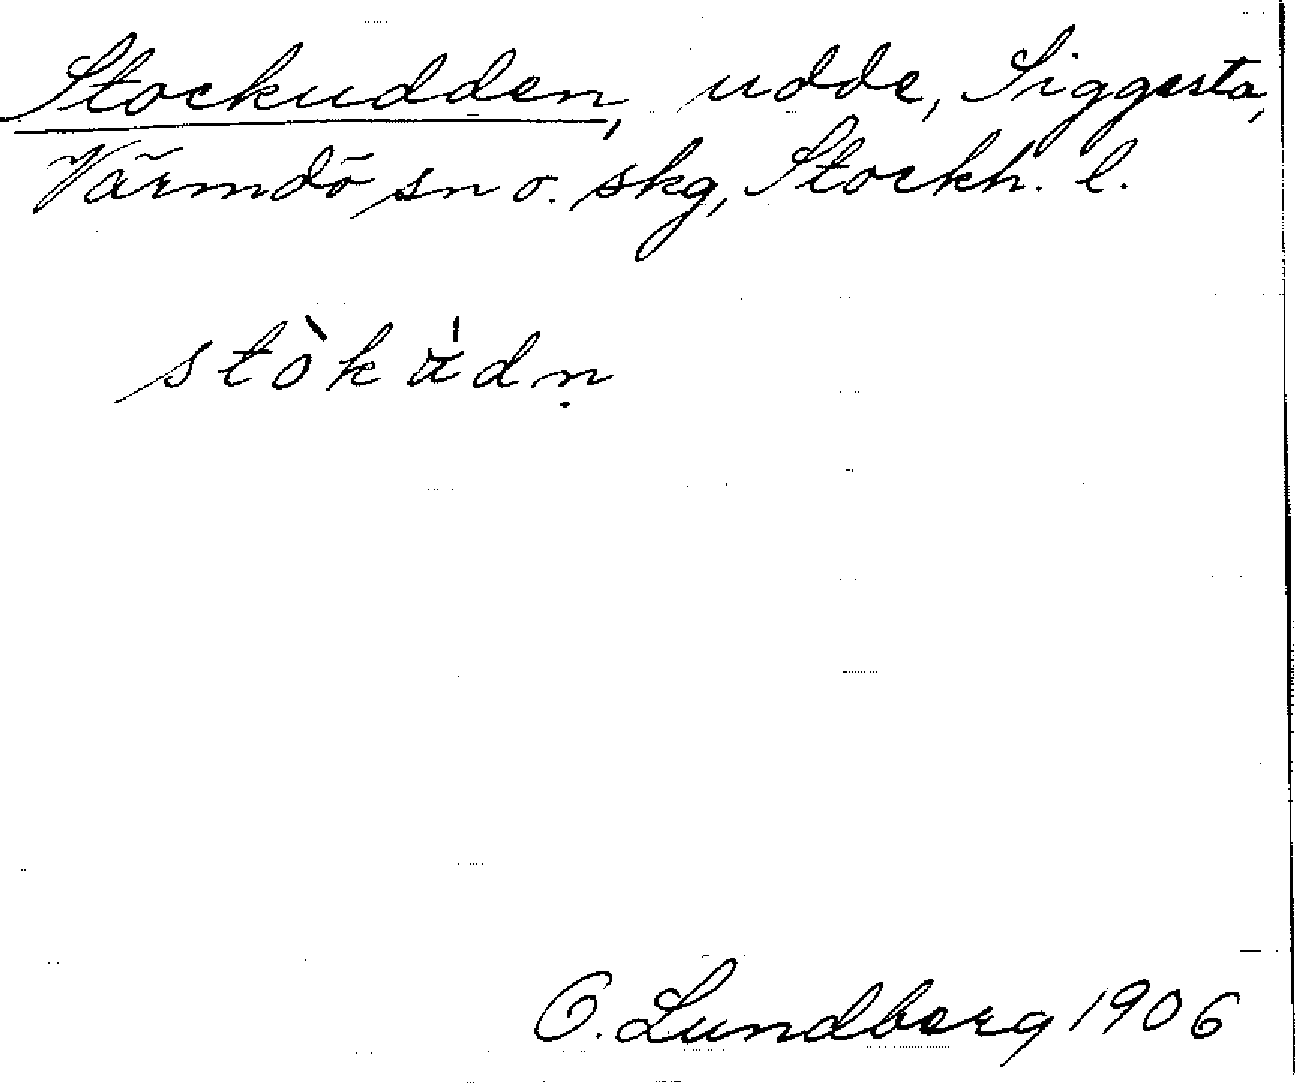 Stockudden, udde, Siggesta,
Värmdö sn o. skg, Stockh. l.
stòkùdṇ
O. Lundberg 1906